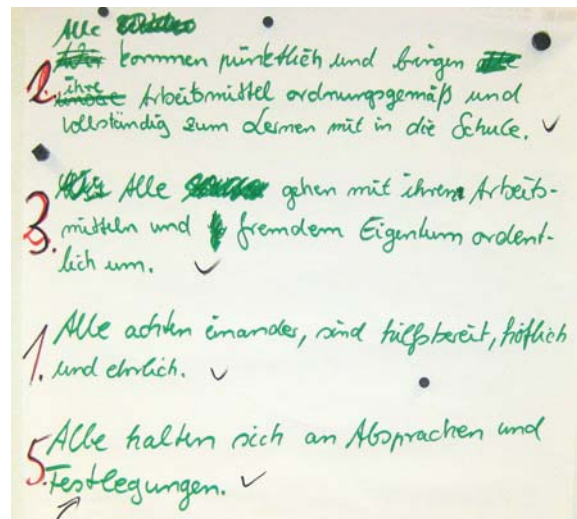 Alle
Wir kommen pünktlich und bringen alle
2. ihre
unsere Arbeitsmittel ordnungsgemäß und
vollständig zum Lernen mit in die Schule. ✓
Wir Alle gehen mit ihren Arbeits-
3. mitteln und fremdem Eigentum ordent-
lich um. ✓
Alle achten einander, sind hilfsbereit, höflich
1. und ehrlich. ✓
5. Alle halten sich an Absprachen und
Festlegungen. ✓